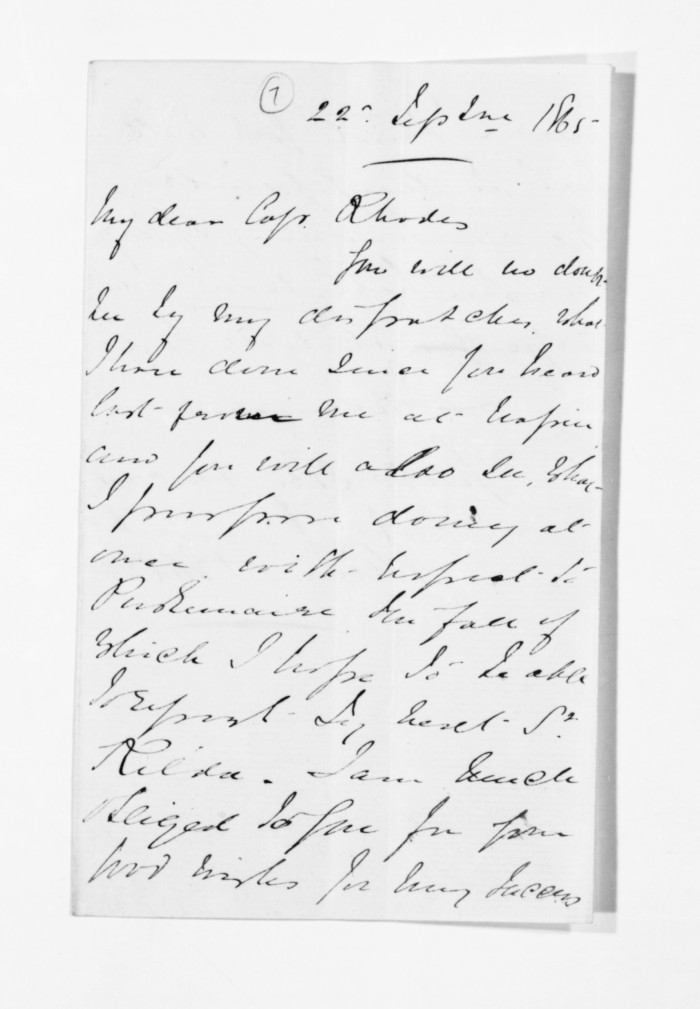 1
22nd Septme 1865
My dear Capt. Rhodes
You will no doubt
see by my dispatches, what
I have done since you heard
last from me at Napier
and you will also see, what
I purpose doing at
once with respect to
the fall of
which I hope to be able
to report by next St.
Kilda. I am much
obliged to you for your
good wishes for my success